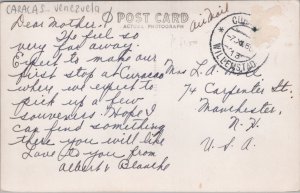 CARACAS. Venezuela
POST CARD
air mail
Dear Mother:
To feel so
very far away.
Expect to make our
first stop at Curacao
where we expect to
pick up a few
souvenirs. Hope I
can find something
there you will like
Love to you from
Albert & Blanche
WILLEMSTAD
Mrs L. A.
74 Carpenter St.
Manchester,
N. H.
U. S. A.